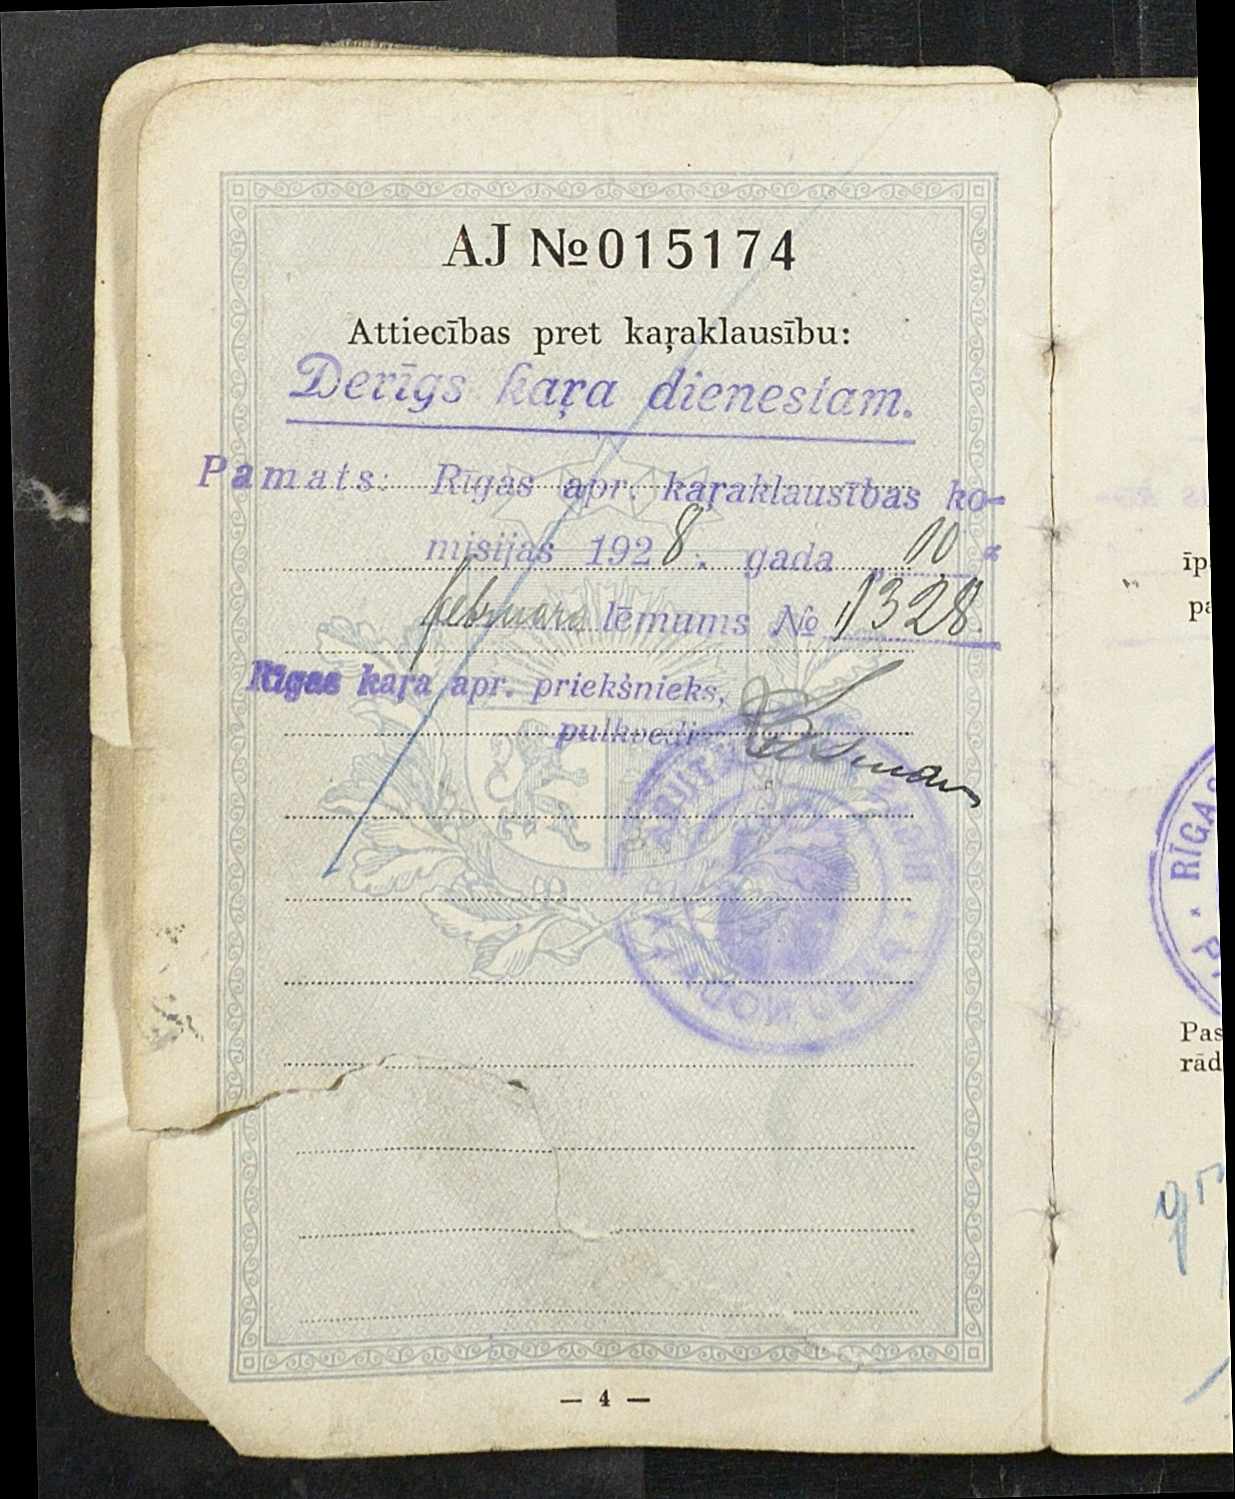 AJ № 015174
Attiecības pret kaŗaklausību:
Derīgs kaŗa dienestam.
Pamats: Rīgas apr. kaŗaklausības ko-
misijas 1928. gada 10
februara lēmums № 1328.
Rīgas kaŗa apr. priekšnieks,
pulkvedis
— 4 —
īp
pa
RĪGAS
Pas
rād